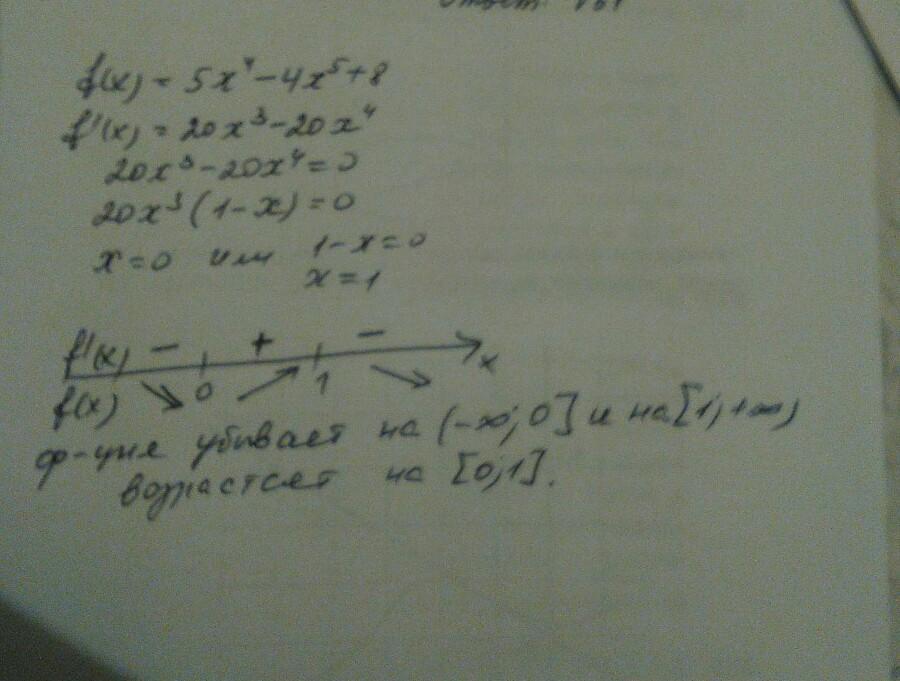 f(x) = 5x⁴ - 4x⁵ + 8
f'(x) = 20x³ - 20x⁴
20x³ - 20x⁴ = 0
20x³(1 - x) = 0
x = 0 или 1 - x = 0
x = 1
f'(x) - + - x
f(x) 0 1
ф-ция убивает на (-∞; 0] и на [1; +∞)
возрастает на [0; 1].